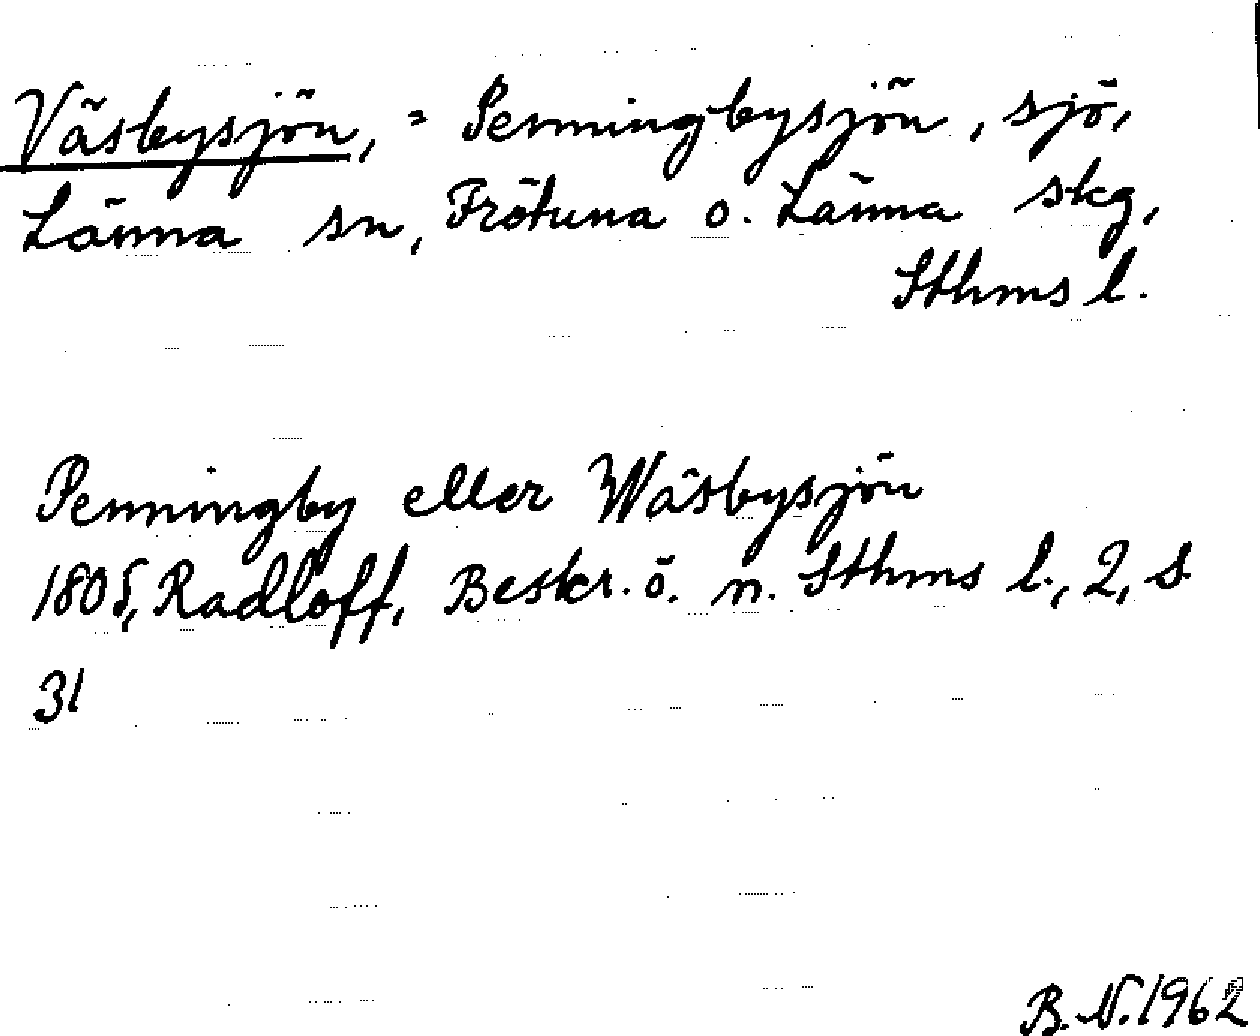 Väsbysjön, = Penningbysjön, sjö,
Länna sn, Frötuna o. Länna skg,
Sthms l.
Penningby eller Wäsbysjön
1805, Radloff, Beskr. ö. n. Sthms l., 2, s.
31
B. N. 1962